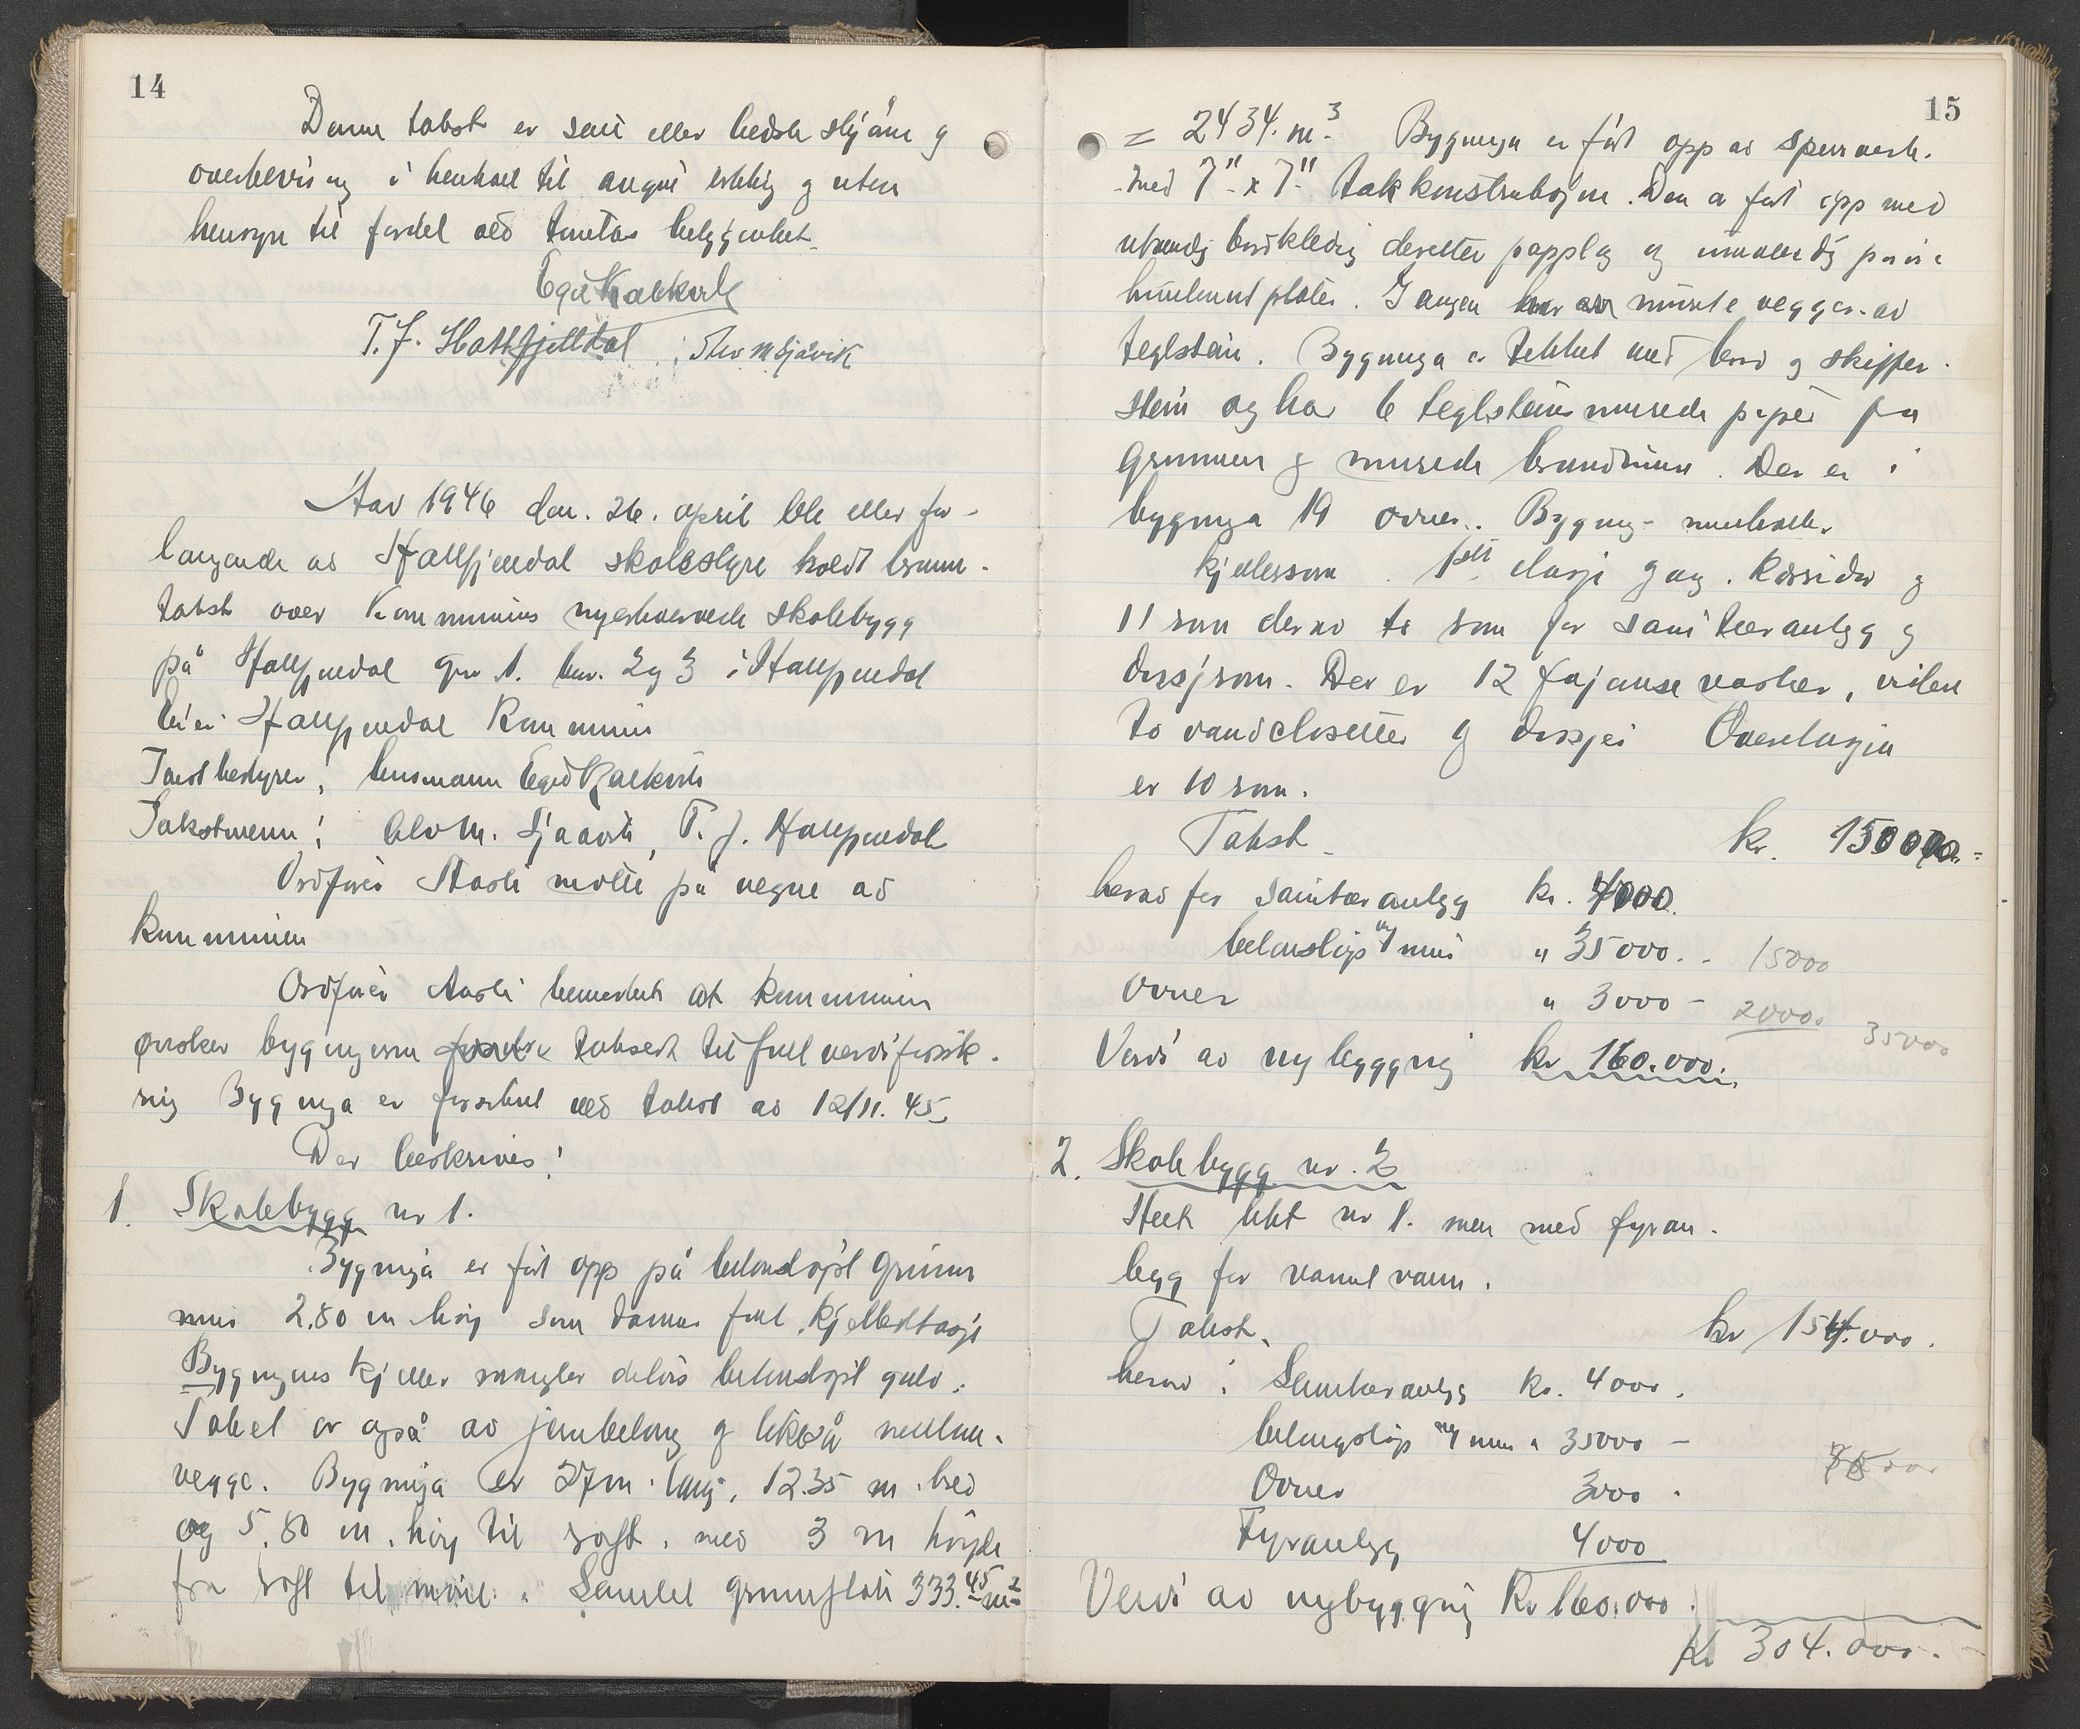 14
Denne takst er satt etter beste skjönn og
overbevisning i henhold til avgitt erklæring og uten
hensyn til fordel ved tomtas beliggenhet.
Egil Kalkvik
T. J. Hattfjelldal Alv M Sjåvik
Aar 1946 den. 26. april ble etter for-
langende av Hattfjelldal skolestyre holdt brann-
takst over Kommunens nyerhvervede skolebygg
på Hattfjelldal gnr 1. bnr. 2 og 3 i Hattfjelldal
Eier Hattfjelldal Kommune
Takstbestyrer, lensmann Egil Kalkvik
Takstmenn: Alv M. Sjaavik, T. J. Hattfjelldal
Ordförer Aasli mötte på vegne av
kommunen
Ordförer Aasli bemerket at kommunen
ønsker bygningene taksert til full verdiforsik-
ring Bygninga er forsikret ved takst av 12/11. 45.
Der beskrives:
1. Skolebygg nr 1.
Bygninga er fört opp på betonstöpt grunn
mur 2.80 m höy som danner full kjelleretasje
Bygningens kjeller mangler delvis betonstöpt gulv.
Taket er også av jernbetong og likeså mellom-
vegge. Bygninga er 27 m. lang, 12.35 m. bred
og 5.80 m. höy til raft. med 3 m höyde
fra raft til möne. Samlet grunnflate 333.45 m²
15
= 2434. m.³ Bygninga er fört opp av sperreverk.
med 7" x 7" takkonstruksjon. Den er fört opp med
utvendig bordkledning deretter papplag og innvendig
huntonitplater. Gangen har murte vegger av
teglstein. Bygninga er tekket med bord og skiffer-
stein og har 6 teglsteins murede piper fra
grunnen og murede brandmurer. Der er i
bygninga 19 ovner. Bygning inneholder
kjellerrom. 1ste etasje gang. Korridor og
11 rom derav to rom for sanitæranlegg og
dusjrom. Der er 12 fajanse vasker, videre
to vandclosetter og dusjer Overetasjen
er 10 rom.
Takst kr. 150000.-
herav for sanitæranlegg kr. 4000.
betonstöp og mur " 35000.- 15000
Ovner " 3000 - 20000 35000
Verdi av ny bygging kr 160.000.
2. Skolebygg nr. 2
Helt likt nr 1. men med fyran-
legg for varmt vann.
Takst. kr 154.000.
herav i Sanitæranlegg kr. 4000.
betongstöp og mur " 35000 -
Ovner 3000.
Fyranlegg 4000
Verdi av nybygging Kr 160.000.
Kr 304.000.